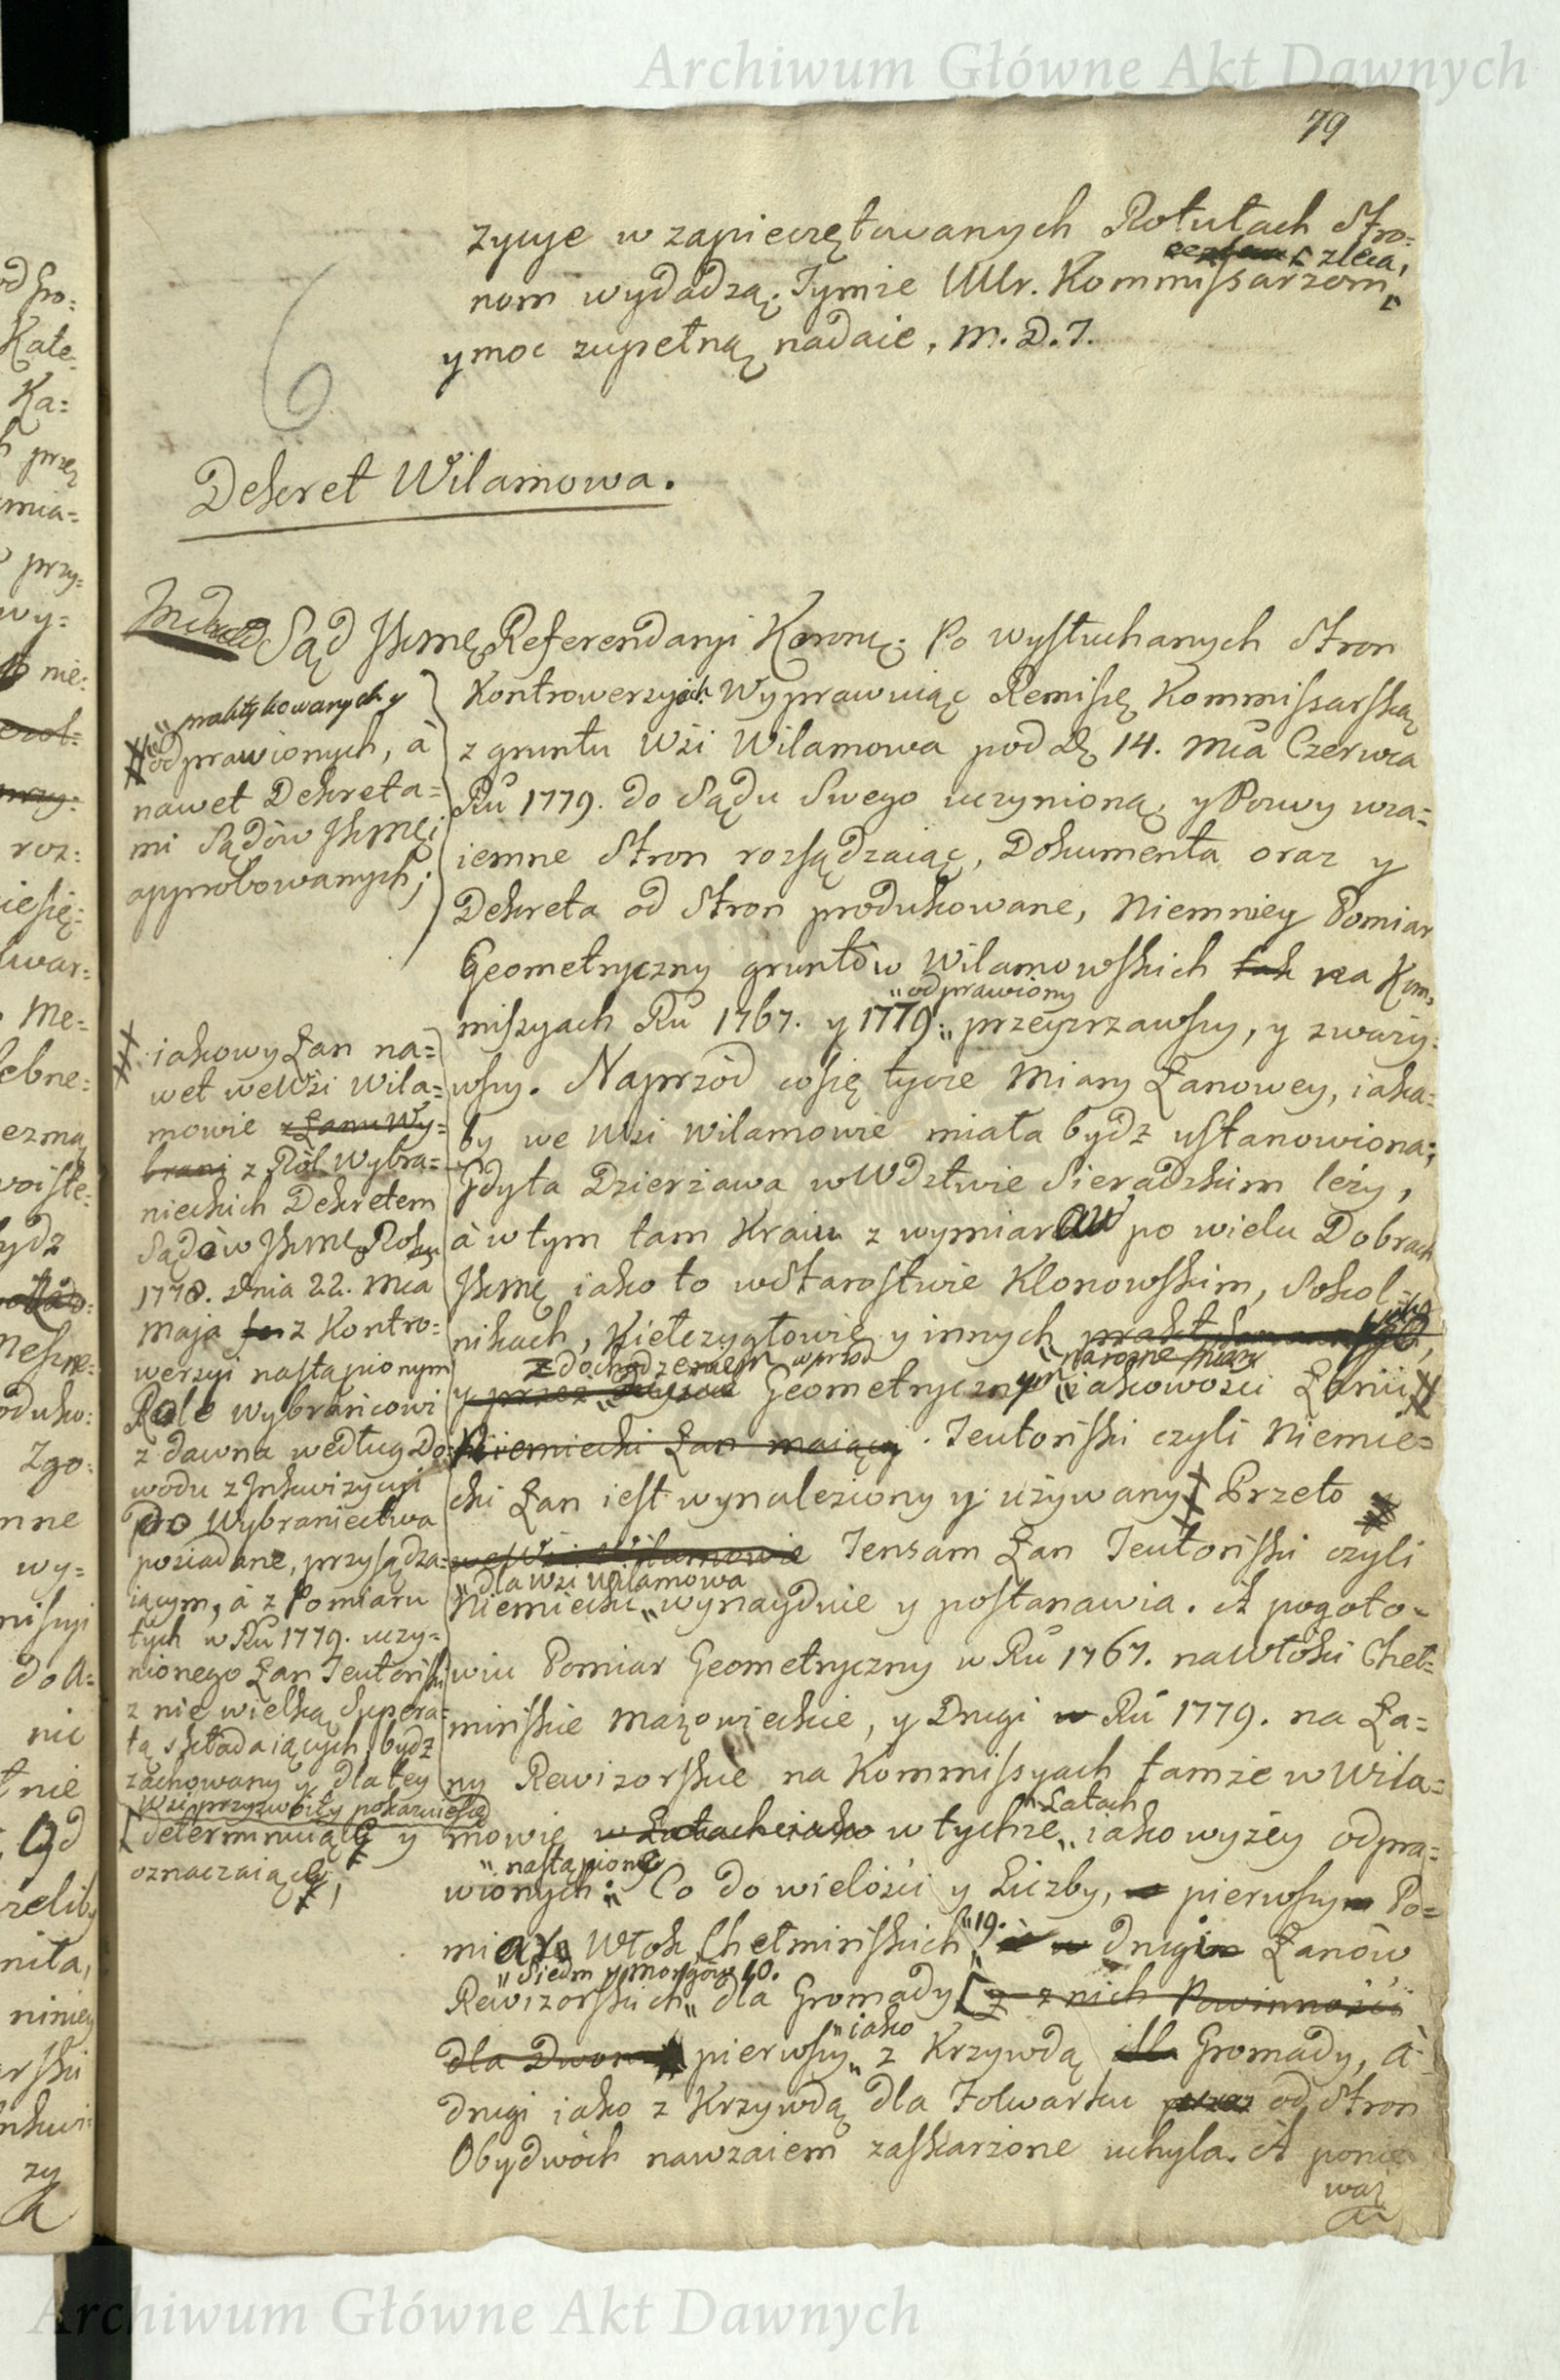 Archiwum Główne Akt Dawnych
79
zycye w zapieczętowanych Rotułach Stro=
zleca,
nom wydadzą. Tymże UUr. Kommissarzom
y moc zupełną nadaie, M. D. J.
6
Dekret Wilamowa.
Sąd JKmę Referendaryi Koronę. Po wysłuchanych Stron
Kontrowersyach. Wyprawuiąc Remissę Kommissarską
z gruntu Wsi Wilamowa pod dę 14. Mca Czerwca
Ru 1779. do Sądu Swego uczynioną, y Pozwy wza=
iemne Stron rozsądzaiąc, Dokumenta oraz y
Dekreta od Stron produkowane, Niemniey Pomiar
Geometryczny gruntów Wilamowskich tak na Kom=
"odprawiony
missyach Ru 1767. y 1779. przeyrzawszy, y zważy=
wszy. Naprzód co się tycze Miary Łanowey, iaka=
by we Wsi Wilamowie miała bydz ustanowiona;
Gdy ta Dzierżawa w Wdztwie Sieradzkim leży,
à w tym tam Kraiu z wymiarów po wielu Dobrach
JKmę iako to w Starostwie Klonowskim, Sokol=
nikach, Kiełczygłowie y innych
z dochodzeniem wprzód
y przez Geometrycznym iakowości Łanu
Niemiecki Łan maiący. Teutoński czyli Niemie=
cki Łan iest wynaleziony y używany Przeto
we Wsi Wilamowie Tensam Łan Teutoński czyli
"dla wsi Wilamowa
Niemiecki wynayduie y postanawia. A pogoto=
wiu Pomiar Geometryczny w Ru 1767. na Włóki Cheł=
mińskie Mazowieckie, y Drugi w Ru 1779. na Ła=
ny Rewizorskie na Kommissyach tamże w Wila=
"Latach
mowie w Latach iako w tychże iako wyżey odpra=
"nastąpione
wionych: Co do wielości y Liczby, pierwszy Po=
"19.
miar Włok Chełmińskich drugi Łanów
"Siedm y Morgów 10.
Rewizorskich dla Gromady z nich Powinności
"iako
dla Dworu pierwszy z Krzywdą dla Gromady, à
drugi iako z Krzywdą dla Folwarku przez od Stron
Obydwóch nawzaiem zaskarżone uchyla. A ponie
waż
"praktykowanych y
odprawionych, à
nawet Dekreta=
mi Sądów JKmęi
approbowanych;
iakowy Łan na=
wet we Wsi Wila=
mowie z Łanu Wy=
brani z Ról Wybra=
nieckich Dekretem
Sądów JKmę Roku
1778. dnia 22. Mca
Maja z Kontro=
wersyi nastąpionym
Role Wybrańcowi
z dawna według Do=
wodu z Inkwizycyi
do Wybraniectwa
posiadane, przysądza=
iącym, à z Pomiaru
tych w Ru 1779. uczy=
nionego Łan Teutoński
z nie wielką Supera=
tą składaiących, bydz
zachowany y dla tey
Wsi przyzwoity pokazuie się
determinuiące y
oznaczaiące,
Archiwum Główne Akt Dawnych